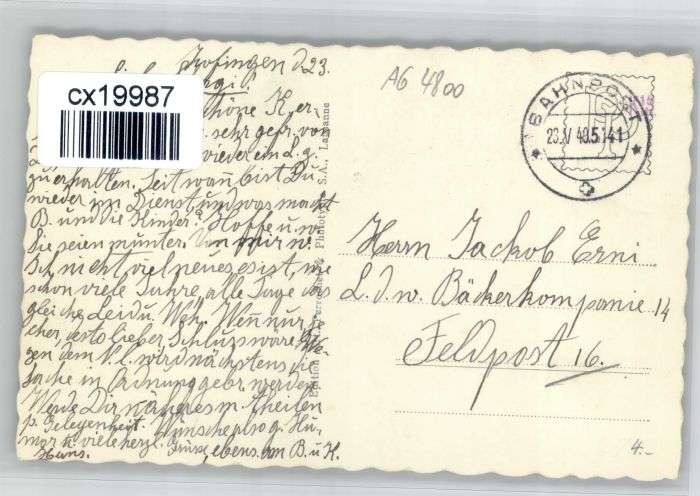 Zofingen d. 23.
cx19987
schöne K. er-
sehr gefr. von
wieder ein L. g.
zu erhalten. Seit wann bist Du
wieder im Dienst, und was macht
B. und die Kinder? Hoffe u. w.
Sie seien munter. Von mir w.
ich nicht viel neues es ist, wie
schon viele Jahre alle Tage das
gleiche Leid u. Weh. Wenn nur
cher, desto lieber Schluss
gen dem wird nächstens die
Sache in Ordnung gebr. werden
Werde Dir näheres m. theilen
p. Gelegenheit. Wünsche pro g. Hu-
mor u. viele herzl. Grüsse, ebens. an B. u. K.
Hans.
Phototypie S.A., Lausanne
A6 4800
BAHNPOST
23.V 40.5141
Herrn Jackob Erni
L. d. w. Bäckerkompanie 14
Feldpost 16.
4.-